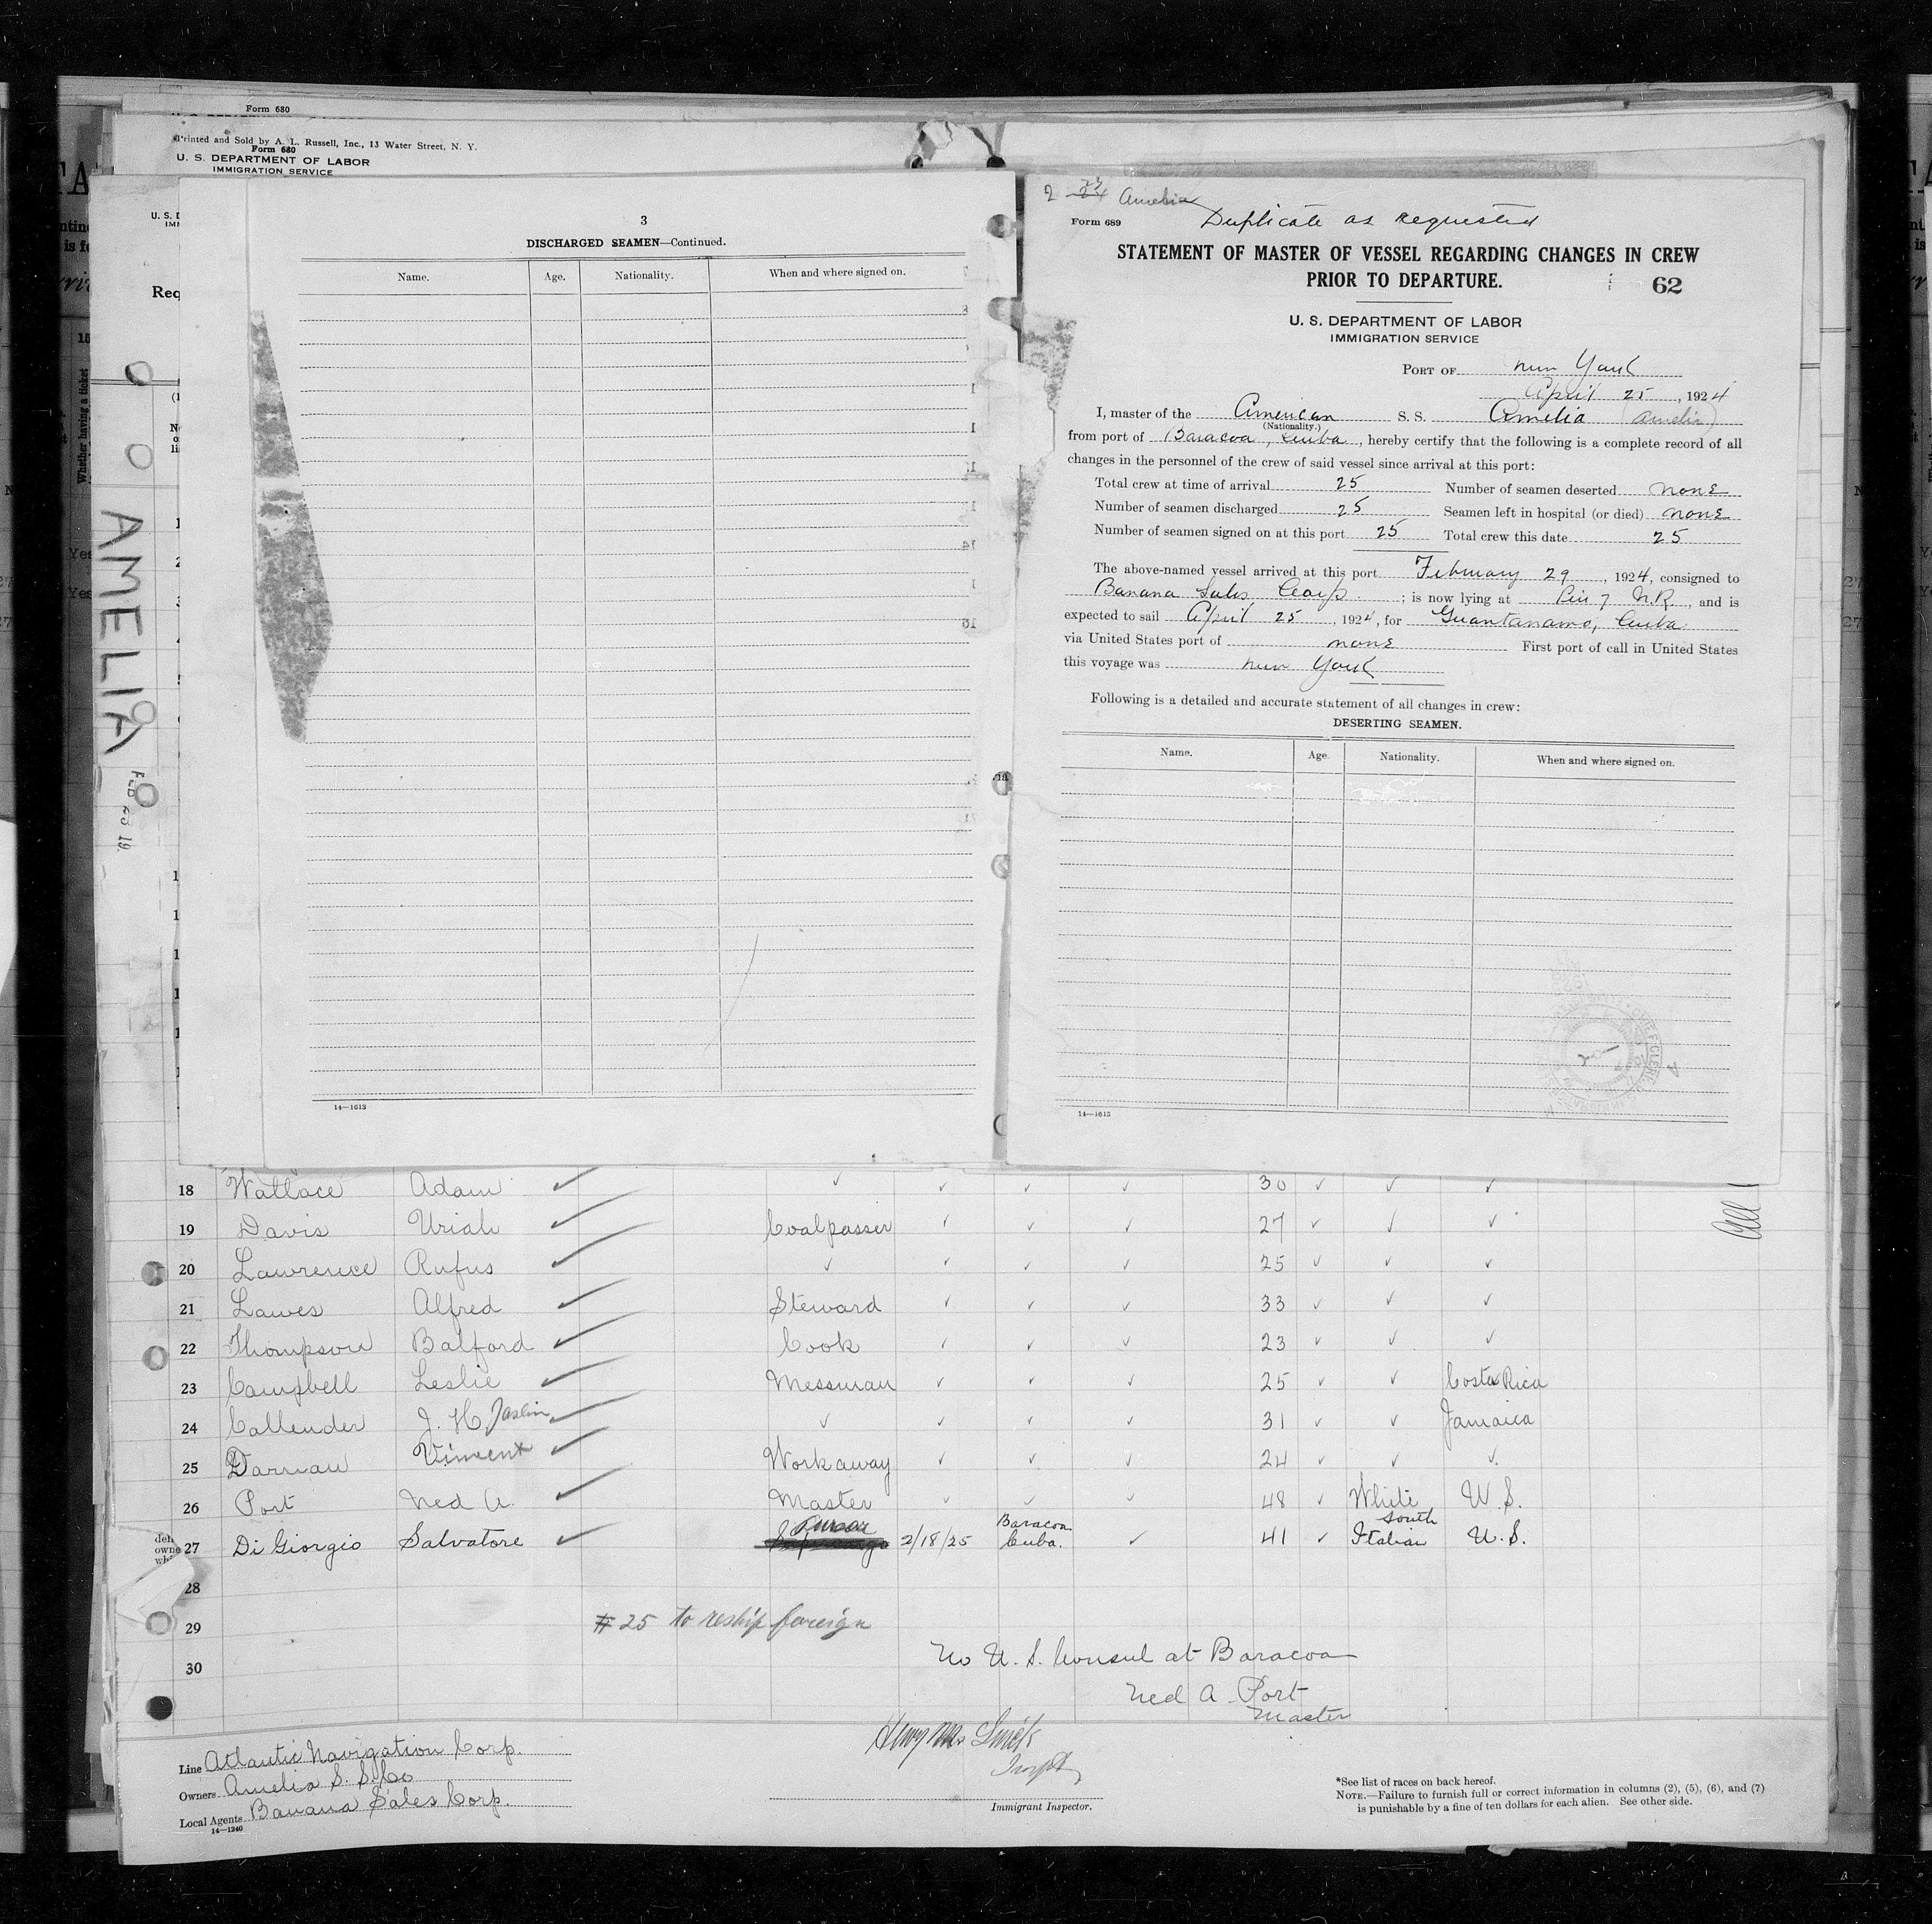 Form 680
Printed and Sold by A. L. Russell, Inc., 13 Water Street, N. Y.
Form 680
U. S. DEPARTMENT OF LABOR
IMMIGRATION SERVICE
Req
AMELIA
FEB 23 19
3
DISCHARGED SEAMEN—Continued.
Name. Age. Nationality. When and where signed on.
14—1613
Amelia
Form 689 Duplicate as requested
STATEMENT OF MASTER OF VESSEL REGARDING CHANGES IN CREW
PRIOR TO DEPARTURE. 62
U. S. DEPARTMENT OF LABOR
IMMIGRATION SERVICE
PORT OF New York
April 25, 1924
I, master of the American S. S. Amelia (Amelia)
(Nationality.)
from port of Baracoa, Cuba, hereby certify that the following is a complete record of all
changes in the personnel of the crew of said vessel since arrival at this port:
Total crew at time of arrival 25 Number of seamen deserted none
Number of seamen discharged 25 Seamen left in hospital (or died) none
Number of seamen signed on at this port 25 Total crew this date 25
The above-named vessel arrived at this port February 29, 1924, consigned to
Banana Sales Corp. ; is now lying at Pier 7 N.R., and is
expected to sail April 25, 1924, for Guantanamo, Cuba
via United States port of none First port of call in United States
this voyage was New York
Following is a detailed and accurate statement of all changes in crew:
DESERTING SEAMEN.
Name. Age. Nationality. When and where signed on.
14—1613
18 Wallace Adam ✓ ✓ ✓ ✓ ✓ 30 ✓ ✓ ✓
19 Davis Uriah ✓ Coalpasser ✓ ✓ ✓ 27 ✓ ✓ ✓
20 Lawrence Rufus ✓ ✓ ✓ ✓ ✓ 25 ✓ ✓ ✓
21 Lawes Alfred ✓ Steward ✓ ✓ ✓ 33 ✓ ✓ ✓
22 Thompson Balford ✓ Cook ✓ ✓ ✓ 23 ✓ ✓ ✓
23 Campbell Leslie ✓ Messman ✓ ✓ ✓ 25 ✓ ✓ Costa Rica
24 Callender J. H. Joslin ✓ ✓ ✓ ✓ ✓ 31 ✓ ✓ Jamaica
25 Darnau Vincent ✓ Workaway ✓ ✓ ✓ 24 ✓ ✓ ✓
26 Port Ned A. ✓ Master ✓ ✓ ✓ 48 ✓ White U.S.
27 Di Giorgio Salvatore ✓ Purser 2/18/25 Baracoa Cuba. ✓ 41 ✓ South Italian U.S.
28
29 #25 to reship foreign
30 No U. S. Consul at Baracoa
Ned A. Port
Master
Line Atlantic Navigation Corp.
Owners Amelia S. S. Co
Local Agents Banana Sales Corp.
14—1240
Immigrant Inspector.
*See list of races on back hereof.
NOTE.—Failure to furnish full or correct information in columns (2), (5), (6), and (7)
is punishable by a fine of ten dollars for each alien. See other side.